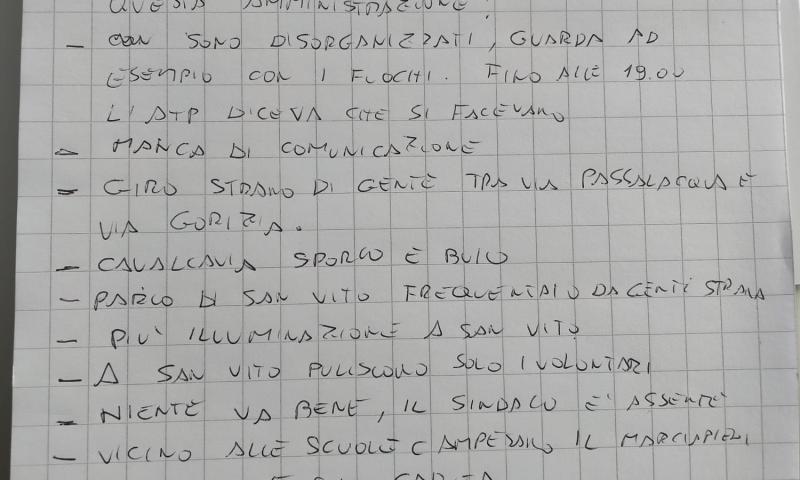 QUESTA AMMINISTRAZIONE.
- SONO DISORGANIZZATI, GUARDA AD
ESEMPIO CON I FUOCHI. FINO ALLE 19.00
L'ATP DICEVA CHE SI FACEVANO
- MANCA DI COMUNICAZIONE
- GIRO STRANO DI GENTE TRA VIA PASSALACQUA E
VIA GORIZIA.
- CAVALCAVIA SPORCO E BUIO
- PARCO DI SAN VITO FREQUENTATO DA GENTE STRANA
- PIU' ILLUMINAZIONE A SAN VITO
- A SAN VITO PULISCONO SOLO I VOLONTARI
- NIENTE VA BENE, IL SINDACO E' ASSENTE
- VICINO ALLE SCUOLE IL MARCIAPIEDI